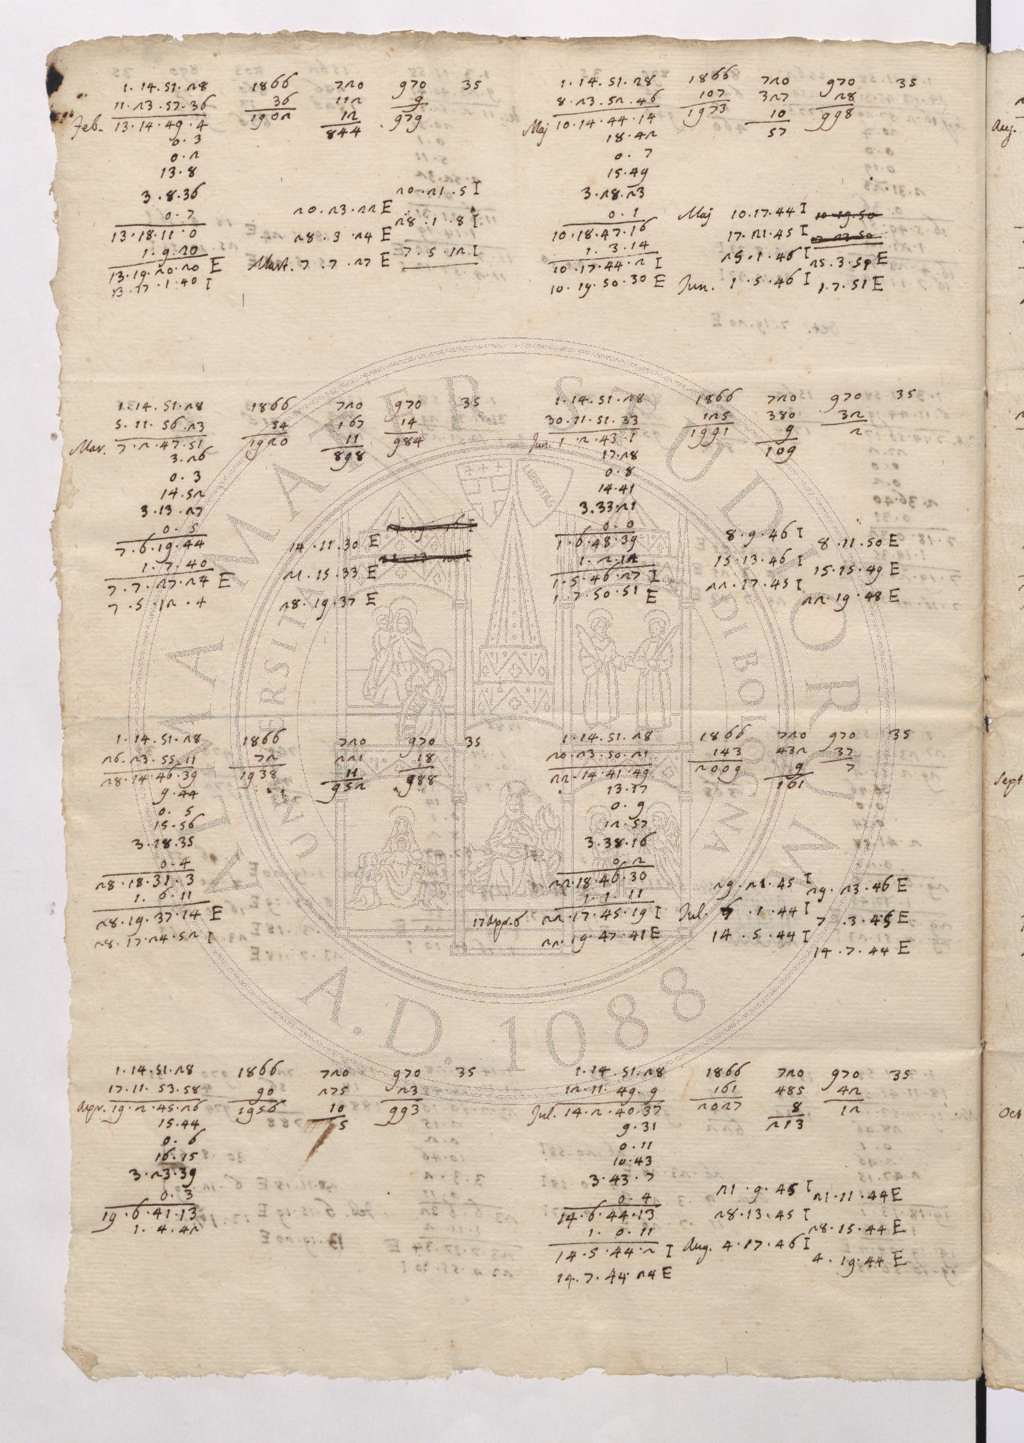 1.14.51.28 1866 720 970 35
11.23.57.36 36 112 9
Feb. 13.14.49.4 1902 12 979
844
0.3
0.2
13.8
3.8.36
0.7
13.18.11.0
1.9.20
13.19.20.20 E
13.17.1.40 I
20.21.5 I
20.23.22 E
28.1.8 I
28.3.24 E
7.5.12 I
Mart. 7.7.27 E
1.14.51.28 1866 720 970 35
8.23.52.46 107 327 28
Maj 10.14.44.14 1973 10 998
57
18.42
0.7
15.49
3.28.23
0.1
10.18.47.16
1.3.14
10.17.44.2 I
10.19.50.30 E
Maj 10.17.44 I 10.19.50
17.21.45 I
25.1.46 I 25.3.59 E
Jun. 1.5.46 I 1.7.51 E
1.14.51.28 1866 720 970 35
5.11.56.23 54 167 14
Mar. 7.2.47.51 1920 11 984
898
3.26
0.3
14.52
3.13.27
0.5
7.6.19.44
1.7.40
7.7.27.24 E
7.5.12.4
14.11.30 E
21.15.33 E
28.19.37 E
1.14.51.28 1866 720 970 35
30.11.51.33 125 380 32
Jun. 1.2.43.1 1991 9 2
109
17.28
0.8
14.41
3.33.21
0.0
1.6.48.39
1.2.12
1.5.46.27 I
1.7.50.51 E
8.9.46 I 8.11.50 E
15.13.46 I 15.15.49 E
22.17.45 I 22.19.48 E
1.14.51.28 1866 720 970 35
26.23.55.11 72 221 18
28.14.46.39 1938 11 988
952
9.44
0.5
15.56
3.18.35
0.4
28.18.31.3
1.6.11
28.19.37.14 E
28.17.24.52 I
1.14.51.28 1866 720 970 35
20.23.50.21 143 432 37
22.14.41.49 2009 9 7
161
13.17
0.9
12.57
3.38.16
0.2
22.18.46.30
1.1.11
22.17.45.19 I
22.19.47.41 E
29.21.45 I 29.23.46 E
Jul. 7.1.44 I 7.3.45 E
14.5.44 I 14.7.44 E
1.14.51.28 1866 720 970 35
17.11.53.58 90 275 23
Apr. 19.2.45.26 1956 10 993
5
15.44
0.6
16.15
3.23.39
0.3
19.6.41.13
1.4.42
1.14.51.28 1866 720 970 35
12.11.49.9 161 485 42
Jul. 14.2.40.37 2027 8 12
213
9.31
0.11
10.43
3.43.7
0.4
14.6.44.13
1.0.11
14.5.44.2 I
14.7.44.24 E
21.9.45 I 21.11.44 E
28.13.45 I 28.15.44 E
Aug. 4.17.46 I 4.19.44 E
Aug.
Sept
Oct
ALMA MATER STUDIORUM
A.D. 1088